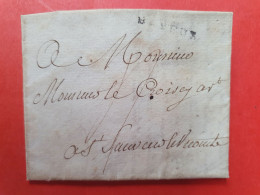 A Monsieur
Monsieur le Croisey av^t
a S^t Sauveur le Vicomte